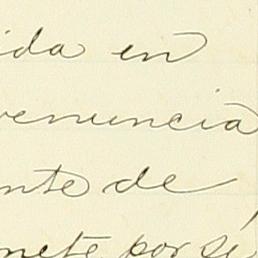 ida en
renuncia
nte de
mete por si